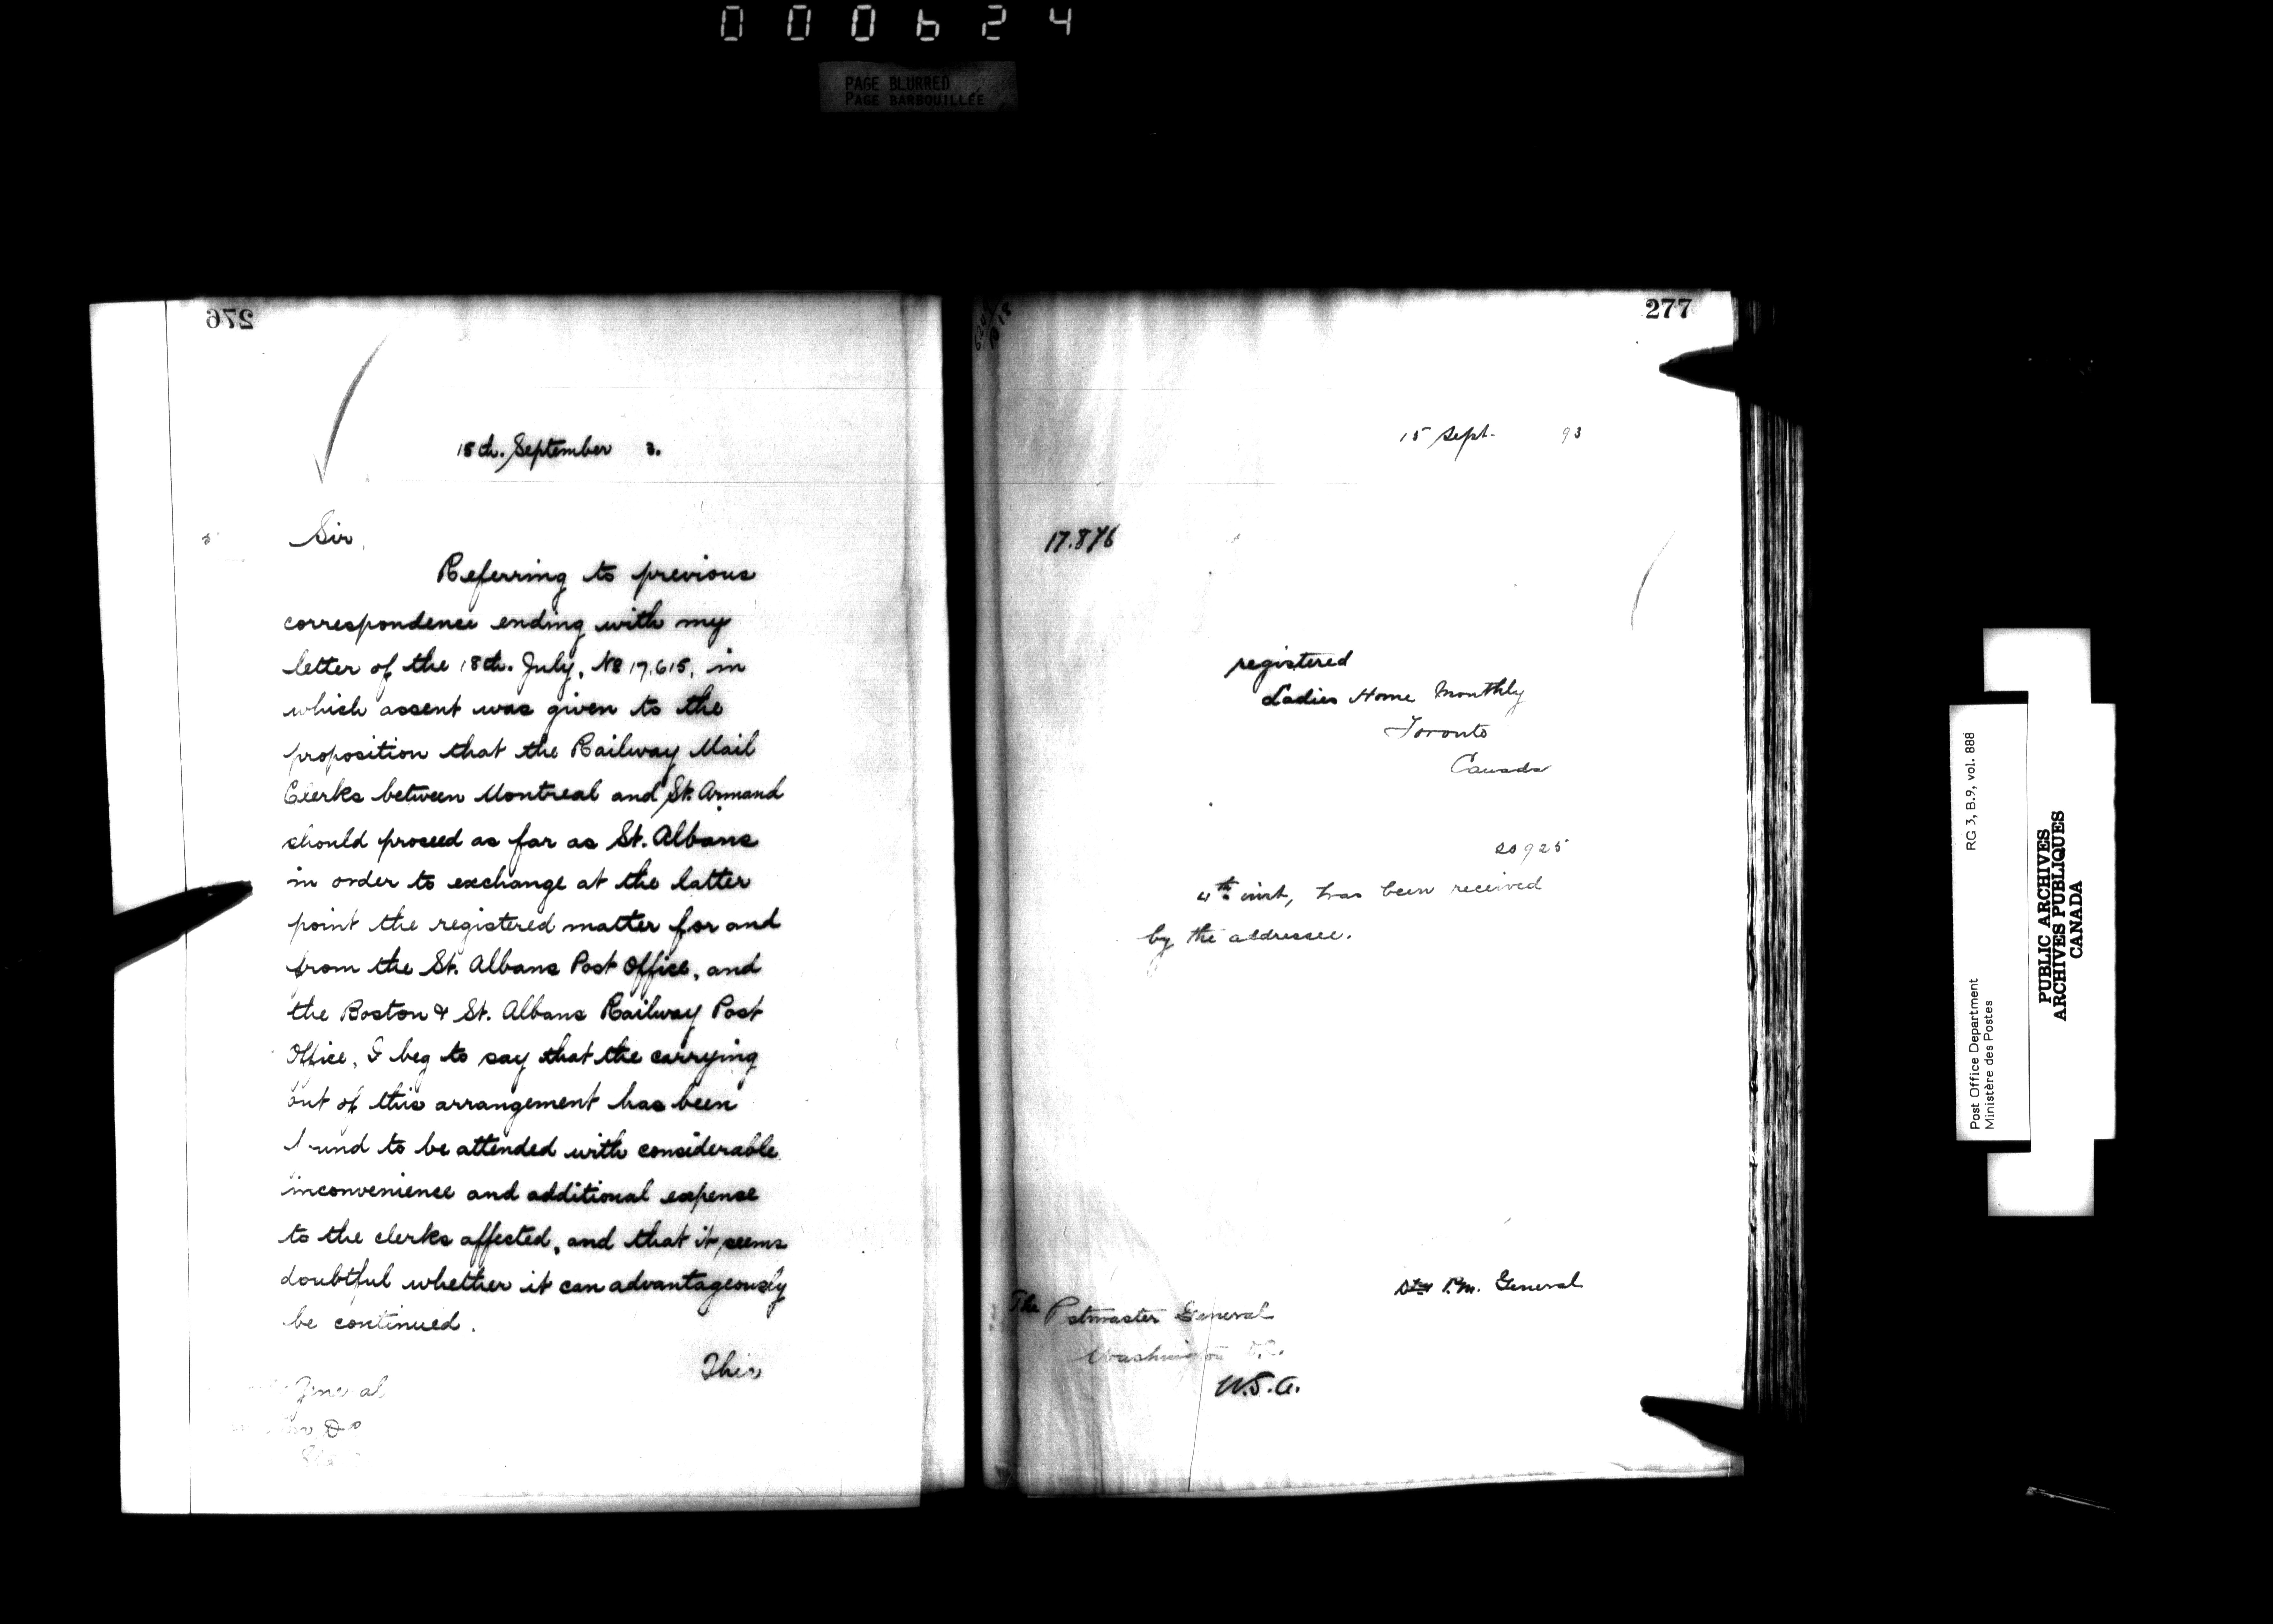 000624
PAGE BLURRED
PAGE BARBOUILLÉE
276
15th. September 3.
Sir,
Referring to previous
correspondence ending with my
letter of the 18th. July, No 17.615, in
which assent was given to the
proposition that the Railway Mail
Clerks between Montreal and St. Armand
should proceed as far as St. Albans
in order to exchange at the latter
point the registered matter for and
from the St. Albans Post Office, and
the Boston & St. Albans Railway Post
Office, I beg to say that the carrying
out of this arrangement has been
found to be attended with considerable
inconvenience and additional expense
to the clerks affected, and that it seems
doubtful whether it can advantageously
be continued.
This
General
277
15 Sept. 93
17.876
registered
Ladies Home Monthly
Toronto
Canada
20925
4th inst, has been received
by the addressee.
P.M. General
The Postmaster General
Washington D.C.
U.S.A.
Post Office Department
Ministère des Postes
RG 3, B.9, vol. 888
PUBLIC ARCHIVES
ARCHIVES PUBLIQUES
CANADA